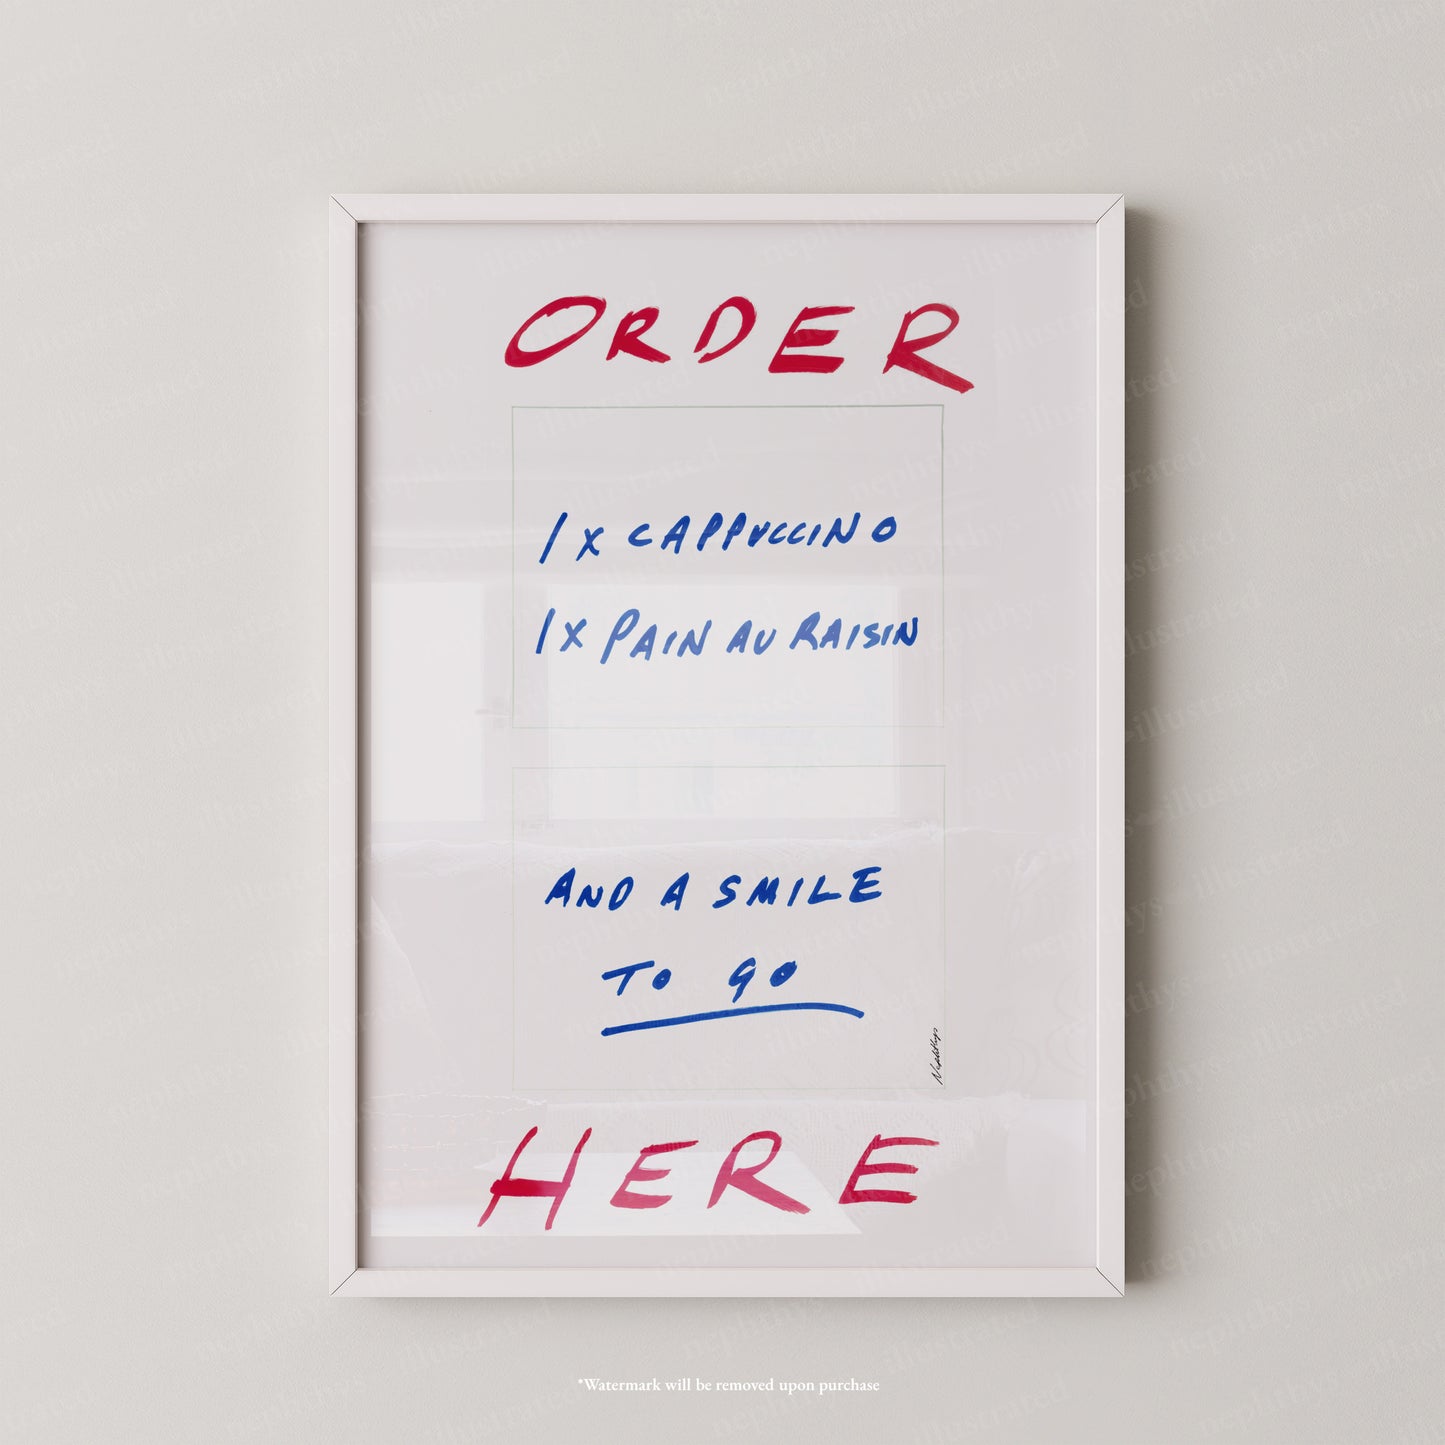 ORDER
1 X CAPPUCCINO
1 X PAIN AU RAISIN
AND A SMILE
TO GO
Nephthys
HERE
*Watermark will be removed upon purchase
nephthys illustrated